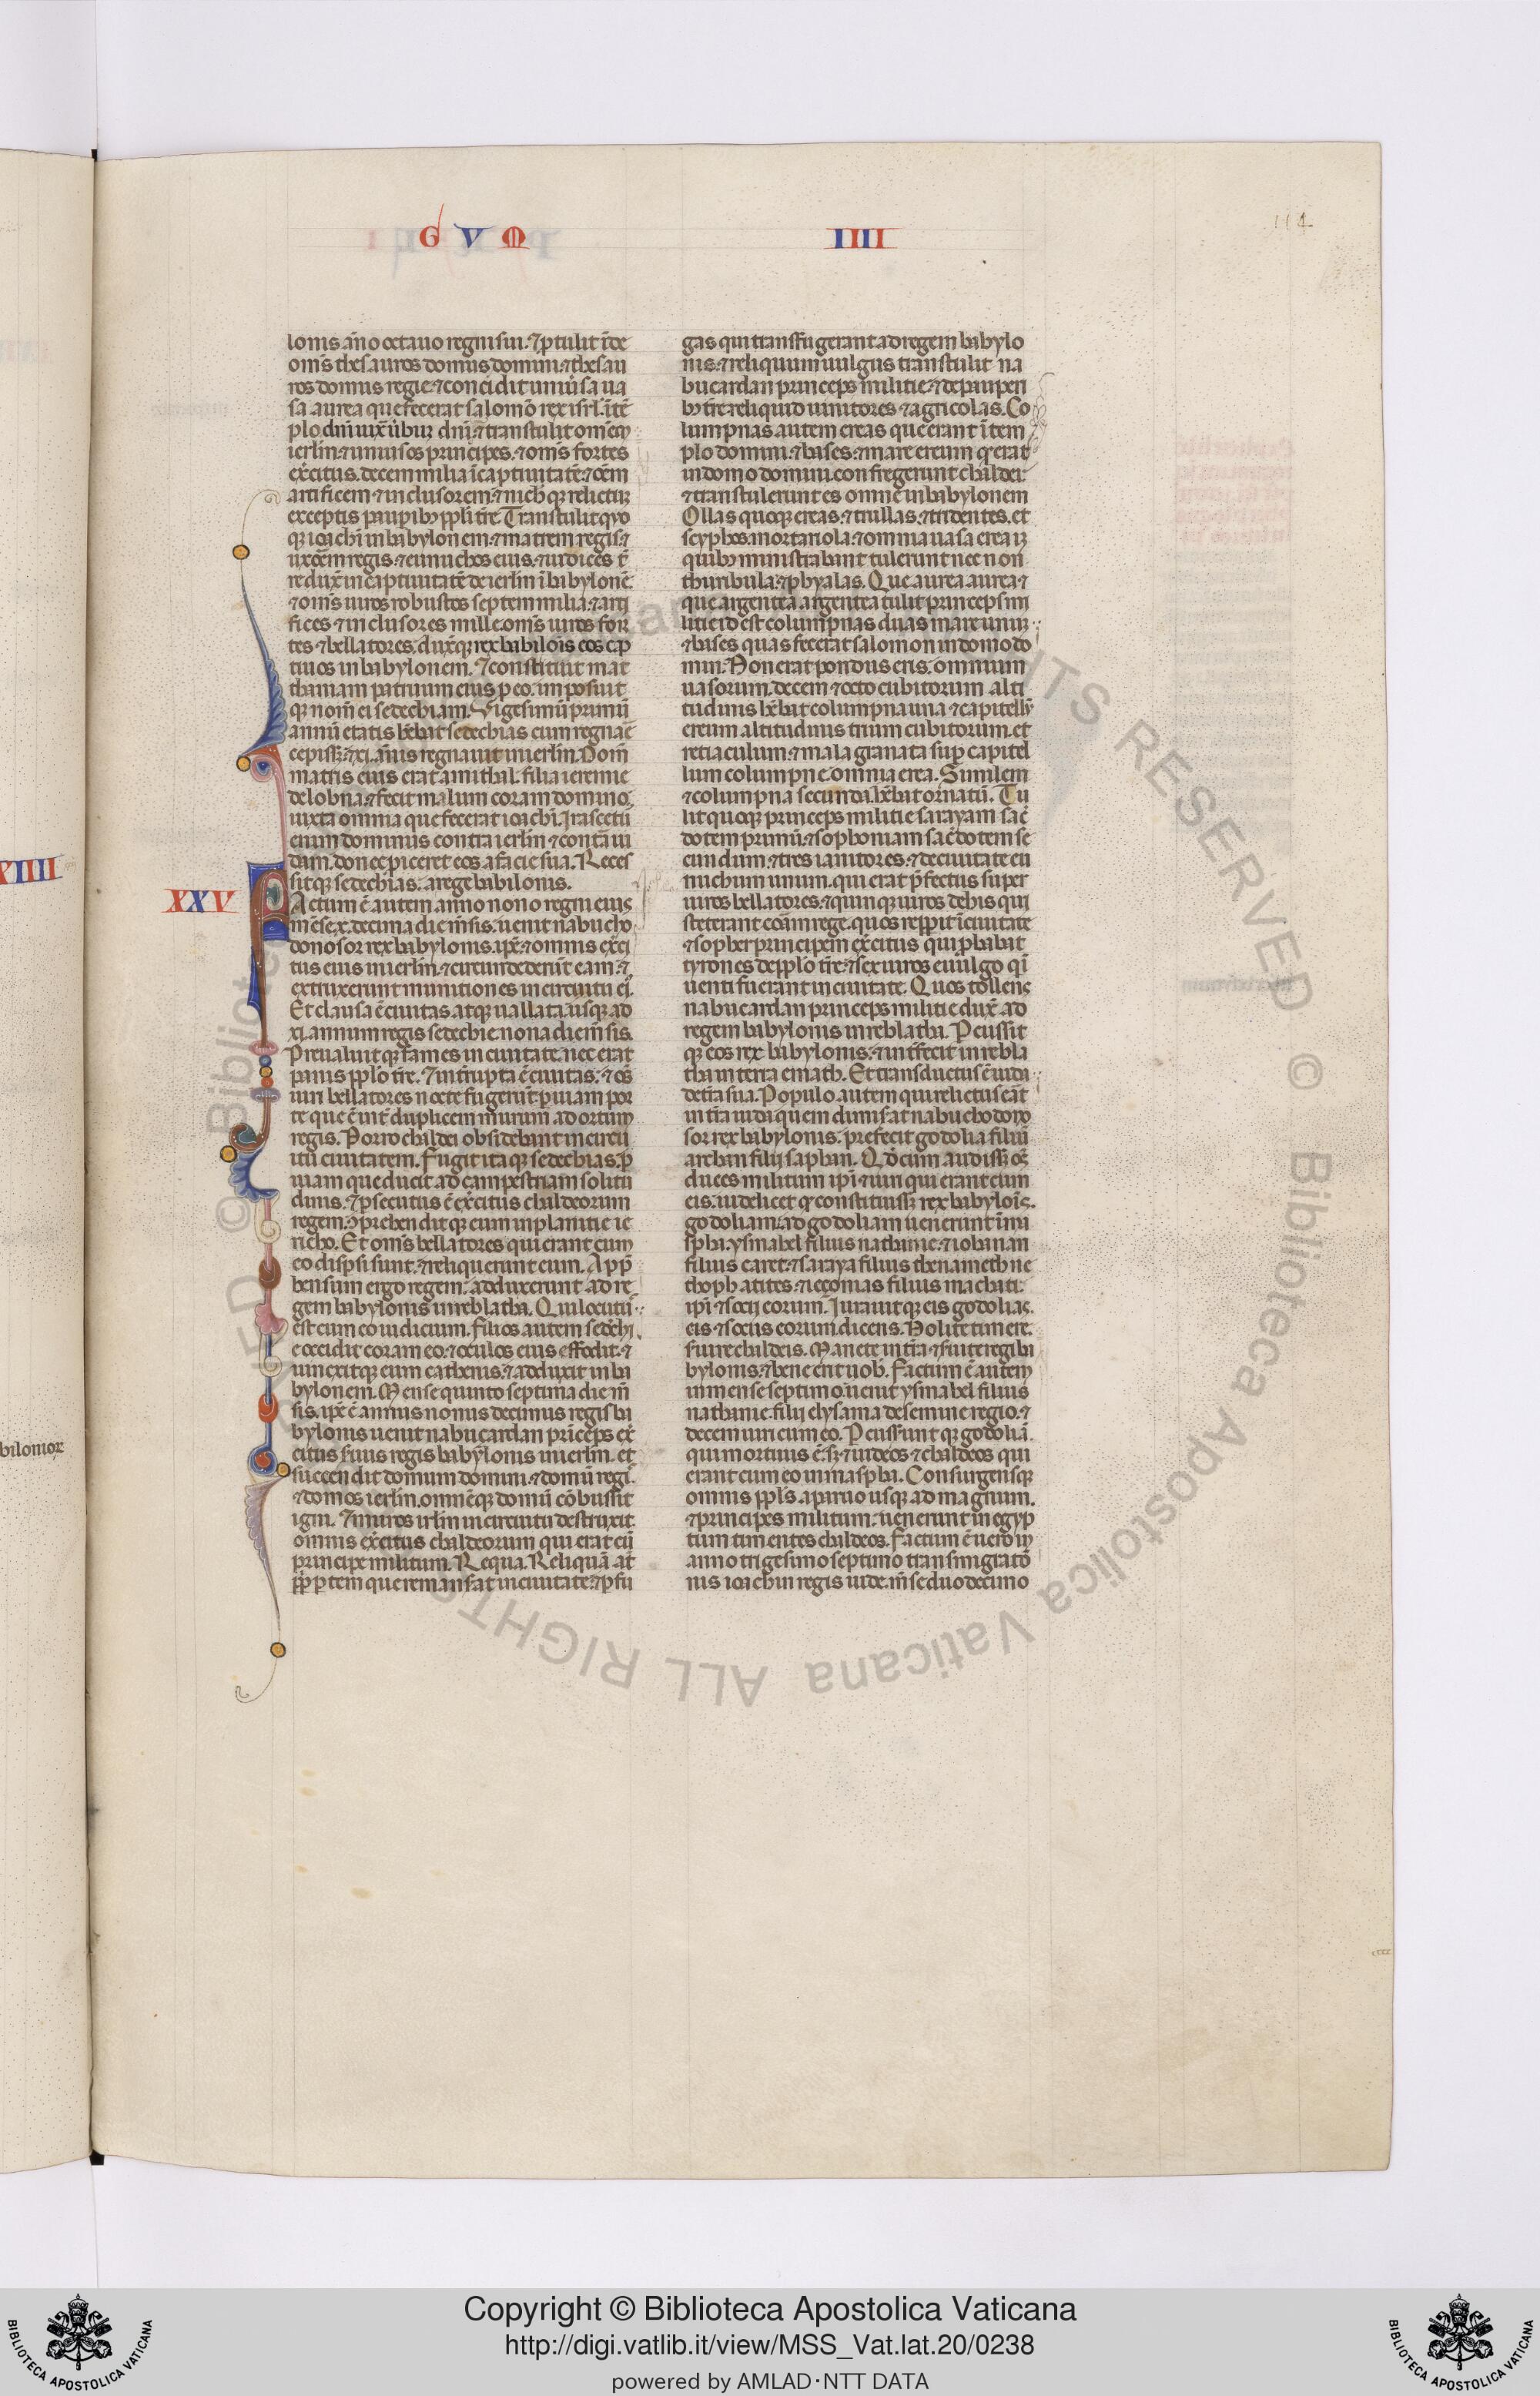 G V M IIII
114
lonis año octauo regni sui. ⁊ p̱tulit īde
om̄s thesauros domus domini. ⁊ thesau
ros domus regie. ⁊ concidit uniūsa ua
sa aurea que fecerat salomō rex isrl̄. ī tē
plo dn̄i iux̄ ūbuʒ dn̄i. ⁊ transtulit om̄em
ierlm̄. ⁊ uniūsos principes. ⁊ om̄s fortes
ex̄citus. decem milia ī captiuitatē. ⁊ oēm
artificem ⁊ inclusorem. ⁊ nich̄ qʒ relictuʒ
exceptis paup̱ibʒ pp̄li tr̄e. Transtulit q̄ʒ
qʒ ioachī in babylonem. ⁊ matrem regis. ⁊
uxōem regis. ⁊ eunuchos eius. ⁊ iudices t̄
re dux̄ in captiuitatē de ierlm̄ ī babylonē
⁊ om̄s uiros robustos septem milia. ⁊ arti
fices ⁊ inclusores mille. om̄s uiros for
tes ⁊ bellatores. dux̄ qʒ rex babilōis eos cap̱
tiuos in babylonem. ⁊ constituit mat
thaniam patruum eius p̱ eo. imposuit
qʒ nom̄ ei sedechiam. Vigesimū primū
annū etatis hēbat sedechias cum regnaē
cepissʒ. ⁊ xi. annis regnauit in ierlm̄. Nom̄
matris eius erat amithal. filia ieremie
de lobna. ⁊ fecit malum coram domino.
iuxta omnia que fecerat ioachī. Irascetū
enim dominus contra ierlm̄ ⁊ contā iu
dam. donec piceret eos a facie sua. Reces
sitqʒ sedechias. a rege babilonis.
XXV
Factum ē autem anno nono regni eius
mēse. x. decima die m̄sis. uenit nabucho
donosor rex babylonis. ip̄e ⁊ omnis ex̄ci
tus eius in ierlm̄. ⁊ circundederūt eam. ⁊
extruxerunt munitiones in circuitu eī.
Et clausa ē ciuitas atqʒ uallata usqʒ ad
xi. annum regis sedechie. nona die m̄sis.
Preualuit qʒ fames in ciuitate. nec erat
panis pp̄lo tr̄e. ⁊ int̄rupta ē ciuitas. ⁊ oēs
uiri bellatores nocte fugerūt. p̱ uiam por
te que ē int̄ duplicem murum ad ortum
regis. Porro chaldei obsidebant in circū
itū ciuitatem. Fugit itaqʒ sedechias. p̱
uiam que ducit ad campestriam solitu
dinis. ⁊ p̱secutus ē ex̄citus chaldeorum
regem. ꝯprehendit qʒ eum in planitie ie
richo. Et om̄s bellatores qui erant cum
eo disp̱si sunt. ⁊ reliquerunt eum. App̄
hensum ergo regem. adduxerunt ad re
gem babylonis in reblatha. Qui locutū
est cum eo iudicium. Filios autem sedech̄i
e occidit coram eo. ⁊ oculos eius effodit. ⁊
uinxitqʒ eum cathenis. ⁊ adduxit in ba
bylonem. Mense quinto septima die m̄
sis. ip̄e ē annus nonus decimus regis ba
bylonis uenit nabucardan prīceps ex̄
citus s̄uus regis babylonis in ierlm̄. et
succendit domum domini. ⁊ domū regī.
⁊ domos ierlm̄. omnēqʒ domū cōbussit
igni. ⁊ muros irlm̄ in circuitu destruxit
omnis ex̄citus chaldeorum qui erat cū
principe militum. Requa. Reliquā at̄
pp̄li p̱tem que remans̄at in ciuitate. ⁊ p̱fu
gas qui transfugerant ad regem babylo
nis. ⁊ reliquum uulgus transtulit na
bucardan princeps militie. ⁊ de pauperi
bʒ tr̄e reliquid uinitores ⁊ agricolas. Co
lumpnas autem ereas que erant ī tem
plo domini. ⁊ bases. ⁊ mare ereum q̄ erat
in domo domini. confregerunt chaldei.
⁊ transtulerunt es omnē in babylonem
Ollas quoqʒ ereas. ⁊ trullas. ⁊ tridentes. et
scyphos. ⁊ mortariola. ⁊ omnia uasa erea ī
quibʒ ministrabant tulerunt nec non
thuribula. ⁊ phyalas. Que aurea aurea. ⁊
que argentea argentea tulit princeps mi
litie. id est columpnas duas mare unuʒ.
⁊ bases quas fecerat salomon in domo do
mini. Non erat pondus eris. omnium
uasorum. decem ⁊ octo cubitorum alti
tudinis hēbat columpna una ⁊ capitellʒ
ereum altitudinis trium cubitorum. et
retiaculum. ⁊ mala granata sup̱ capitel
lum columpne. omnia erea. Similem
⁊ columpna secunda. hēbat ornatū. Tu
lit quoqʒ princeps militie sarayam sac̄
dotem primū. ⁊ sophoniam sac̄dotem se
cundum. ⁊ tres ianitores. ⁊ de ciuitate eu
nuchum unum. qui erat p̄fectus super
uiros bellatores. ⁊ quinqʒ uiros de his qui
steterant corā rege. quos repp̱it ī ciuitate
⁊ sopher principem ex̄citus qui p̱babat
tyrones de pp̄lo tr̄e. ⁊ sex uiros e uulgo qī
uenti fuerant in ciuitate. Quos tollens
nabucardan princeps militie dux̄ ad
regem babylonis in reblatha. P̱cussit
qʒ eos rex babylonis. ⁊ int̄fecit in rebla
tha in terra emath. Et transductus ē iuda
de t̄ra sua. Populo autem qui relictus eāt
in t̄ra iuda quem dimis̄at nabuchodono
sor rex babylonis. prefecit godolia filiū
aichan filij saphan. Qđ cum audissʒ oēs
duces militum ip̄i ⁊ uiri qui erant cum
eis. uidelicet q̱ constituissʒ rex babylōis.
godoliam. ad godoliam uenerunt ī ma
spha. ysmahel filius nathanie. ⁊ iohanan
filius caret. ⁊ saraya filius thenameth ne
thophatites. ⁊ ieconias filius machati.
ip̄i ⁊ socij eorum. Iurauit qʒ eis godolias.
eis ⁊ sociis eorum. dicens. Nolite timere.
s̄uire chaldeis. Manete in t̄ra ⁊ s̄uite regi ba
bylonis. ⁊ bene erit uob̄. Factum ē autem
in mense septimo. uenit ysmahel filius
nathanie. filij elysama de semine regio. ⁊
decem uiri cum eo. P̱cussunt qʒ godoliā.
qui mortuus ē. sʒ ⁊ iudeos ⁊ chaldeos qui
erant cum eo in maspha. Consurgensqʒ
omnis pp̄ls. a paruo usqʒ ad magnum.
⁊ principes militum. uenerunt in egyp
tum timentes chaldeos. Factum ē uero in
anno trigesimo septimo transmigratō
nis ioachin regis iude. m̄se duodecimo
XIIII
bilonioꝝ
© Biblioteca Apostolica Vaticana ALL RIGHTS RESERVED
Copyright © Biblioteca Apostolica Vaticana
http://digi.vatlib.it/view/MSS_Vat.lat.20/0238
powered by AMLAD·NTT DATA
BIBLIOTECA APOSTOLICA VATICANA
BIBLIOTECA APOSTOLICA VATICANA